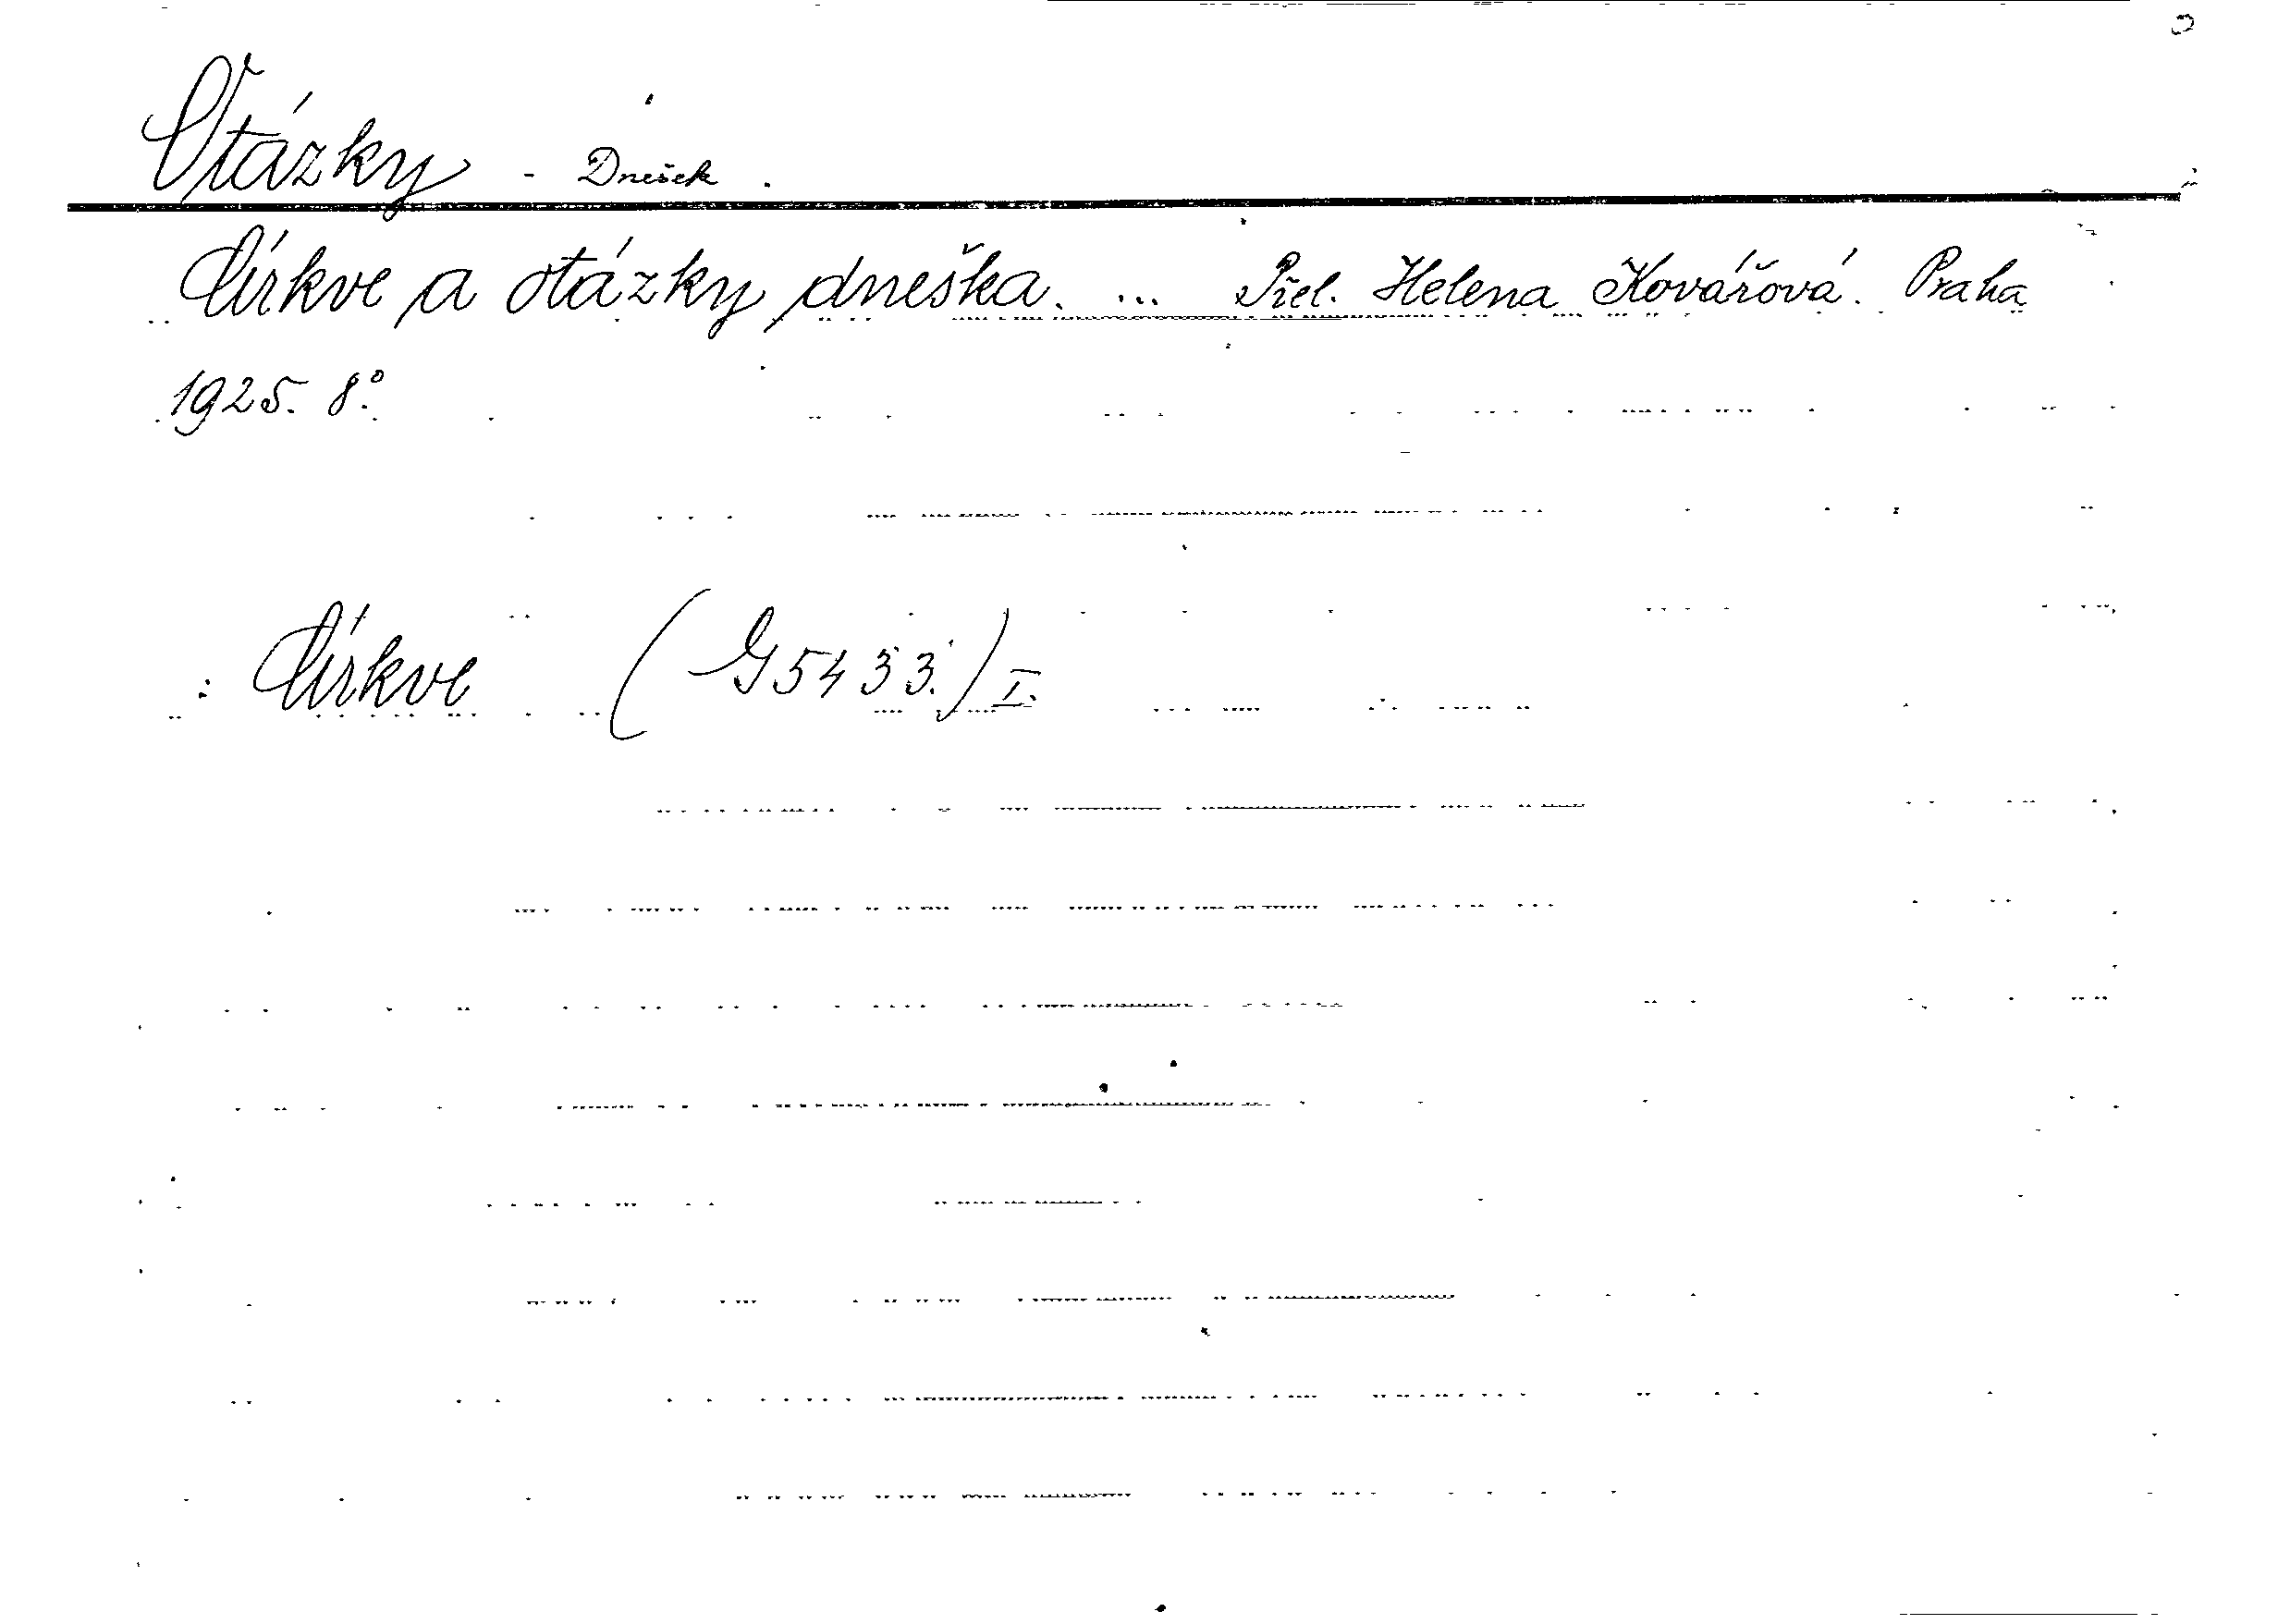 Otázky - Dnešek.
Církve a otázky dneška. ... Přel. Helena Kovářová. Praha
1925. 8°.
: Církve (G 5433.) I.